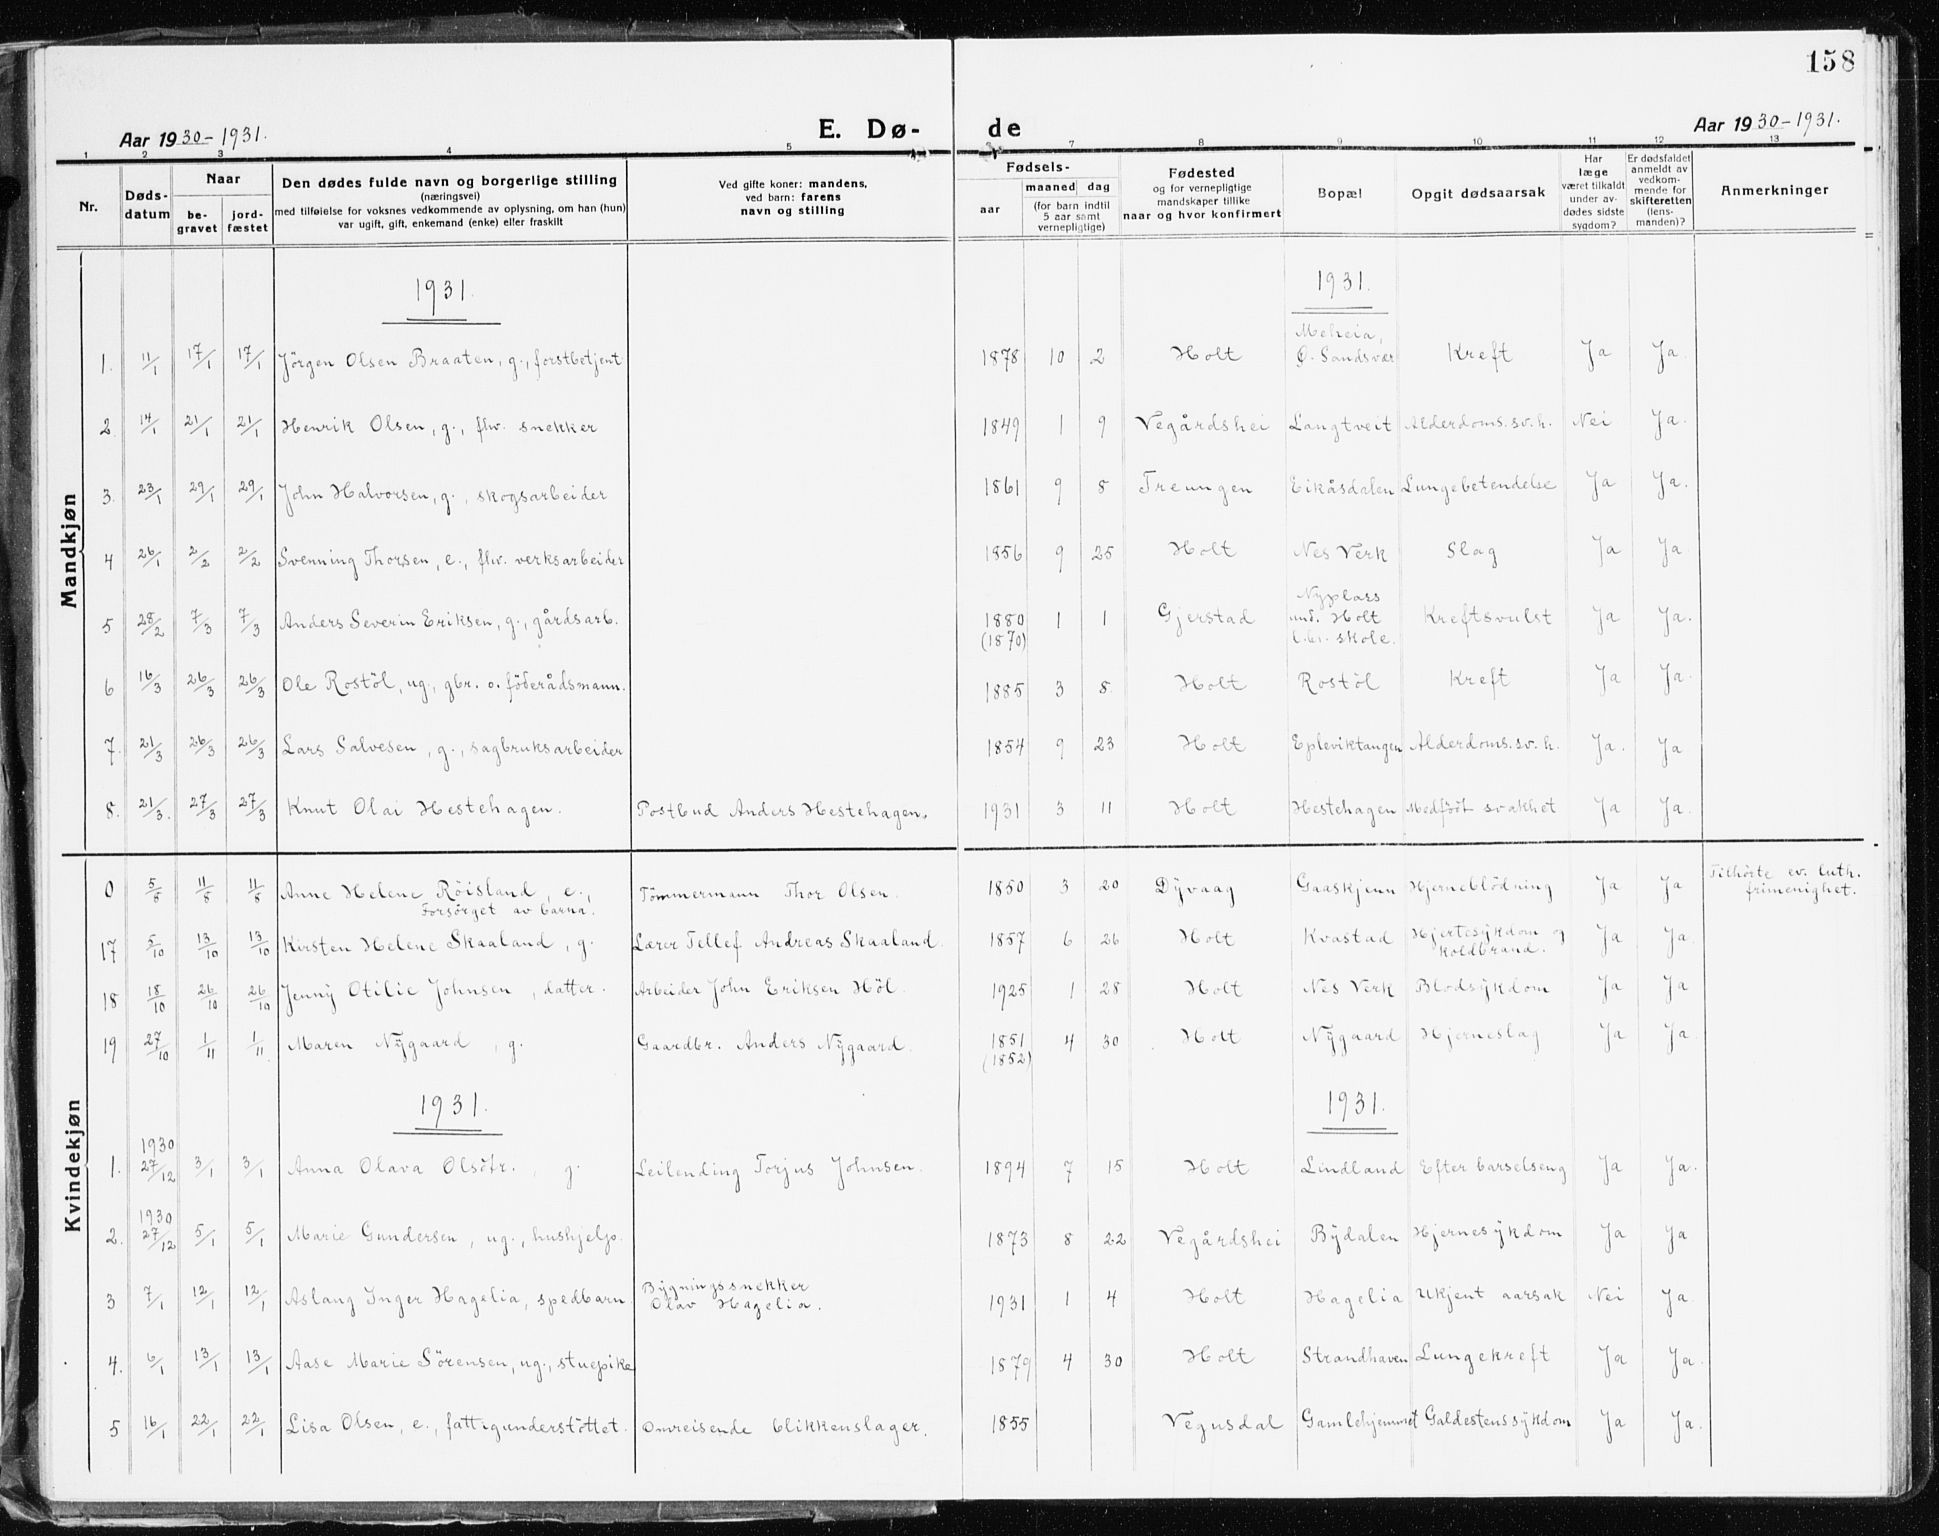 158
Aar 1930-1931. E. Dø- de Aar 1930-1931.
1 2 3 4 5 7 8 9 10 11 12 13
Nr. Døds-datum Naar be-gravet jord-fæstet Den dødes fulde navn og borgerlige stilling (næringsvei) med tilføielse for voksnes vedkommende av oplysning, om han (hun) var ugift, gift, enkemand (enke) eller fraskilt Ved gifte koner: mandens, ved barn: farens navn og stilling Fødsels- aar maaned dag (for barn indtil 5 aar samt vernepligtige) Fødested og for vernepligtige mandskaper tillike naar og hvor konfirmert Bopæl Opgit dødsaarsak Har læge været tilkaldt under av-dødes sidste sygdom? Er dødsfaldet anmeldt av vedkom-mende for skifteretten (lens-manden)? Anmerkninger
Mandkjøn
1931. 1931.
1. 11/1 17/1 17/1 Jörgen Olsen Braaten, g., forstbetjent 1878 10 2 Holt Meheia, Ö. Sandsvær Kreft Ja Ja.
2. 14/1 21/1 21/1 Henrik Olsen, g., fhv. snekker 1849 1 9 Vegårdshei Langtveit Alderdoms.sv.h. Nei Ja.
3. 23/1 29/1 29/1 John Halvorsen, g., skogsarbeider 1861 9 8 Treungen Eikåsdalen Lungebetendelse Ja Ja.
4 26/1 2/2 2/2 Svenning Thorsen, e., fhv. verksarbeider 1856 9 25 Holt Nes Verk Slag Ja Ja
5 28/2 7/3 7/3 Anders Severin Eriksen, g., gårdsarb. 1880 (1870) 1 1 Gjerstad Nyplass und. Holt l.br. skole. Kreftsvulst Ja Ja.
6 16/3 26/3 26/3 Ole Rostöl, ug., gbr. o. föderådsmann. 1885 3 8. Holt Rostöl Kreft Ja Ja.
7. 21/3 26/3 26/3 Lars Salvesen, g., sagbruksarbeider 1854 9 23 Holt Epleviktangen Alderdoms.sv.h. Ja. Ja
8. 21/3. 27/3 27/3 Knut Olai Hestehagen. Postbud Anders Hestehagen. 1931 3 11 Holt Hestehagen Medfödt svakhet Ja Ja.
Kvindekjøn
0 5/8 11/8 11/8 Anne Helene Röisland, e., Forsörget av barna. Tömmermann Thor Olsen. 1850 3 20 Dÿvaag Gaaskjenn Hjerneblödning Ja Ja Tilhörte ev. luth. frimenighet.
17 5/10 13/10 13/10 Kirsten Helene Skaaland, g. Lærer Tellef Andreas Skaaland. 1857 6 26 Holt Kvastad Hjertesÿkdom og koldbrand. Ja Ja.
18 18/10 26/10 26/10 Jennÿ Otilie Johnsen, datter. Arbeider John Eriksen Höl. 1925 1 28 Holt Nes Verk Blodsÿkdom Ja Ja
19 27/10 1/11 1/11 Maren Nÿgaard, g. Gaardbr. Anders Nÿgaard. 1851 (1852) 4 30 Holt Nÿgaard Hjerneslag Ja Ja.
1931. 1931.
1. 1930 27/12 3/1 3/1 Anna Olava Olsdtr., g. Leilending Torjus Johnsen. 1894 7 15 Holt Lindland Efter barselseng Ja Ja.
2. 1930 27/12 5/1 5/1 Marie Gundersen, ug., hushjelp. 1873 8 22 Vegårdshei Bÿdalen Hjernesÿkdom Ja Ja
3 7/1 12/1 12/1 Aslaug Inger Hagelia, spedbarn. Bÿgningssnekker Olav Hagelia. 1931 1 4 Holt Hagelia Ukjent aarsak Nei Ja.
4. 6/1 13/1 13/1 Aase Marie Sörensen, ug., stuepike 1879 4 30 Holt Strandhaven Lungekreft Ja Ja.
5 16/1 22/1 22/1 Lisa Olsen, e., fattigunderstöttet. Omreisende blikkenslager. 1855 Vegusdal Gamlehjemmet Galdestenssÿkdom Ja Ja.